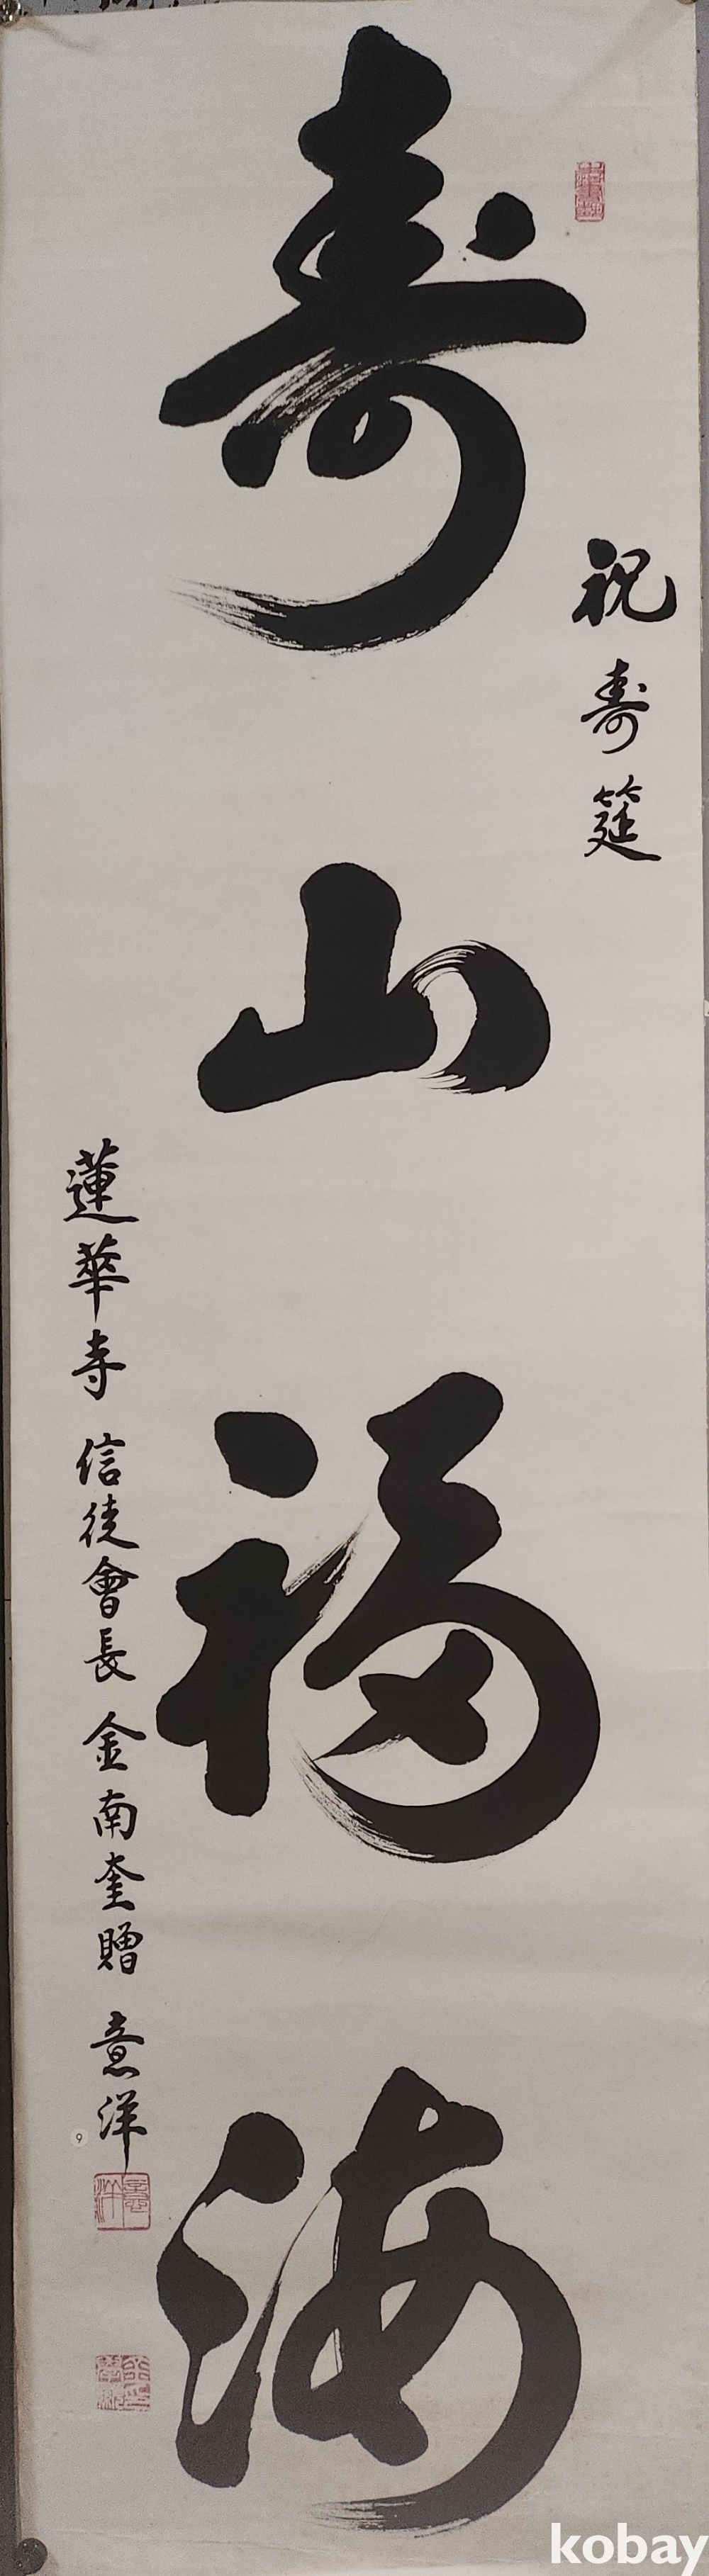 祝寿筵
寿山福海
蓮華寺 信徒會長 金南奎贈 意洋
意洋
9
kobay